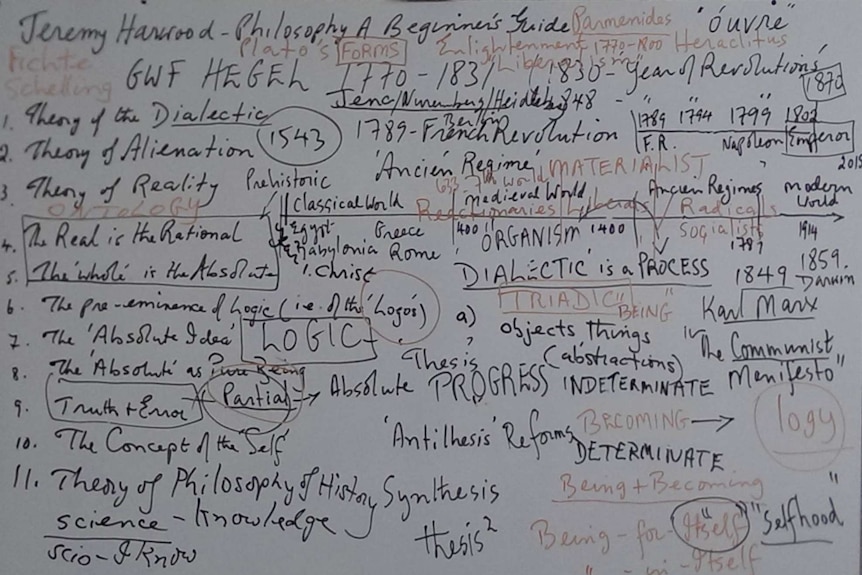 Jeremy Harwood - Philosophy A Beginner's Guide Parmenides "ouvre"
Fichte Plato's FORMS Enlightenment 1770-1800 Heraclitus
Schelling GWF HEGEL 1770 - 1831 "Liberalism" 1830 - Year of Revolutions'
1848 - " " 1870
1. Theory of the Dialectic
1543 1789 - French Revolution Berlin
1789 1794 1799 1802
F.R. Napoleon Emperor
2. Theory of Alienation
'Ancien Regime' MATERIALIST 2015
3. Theory of Reality Prehistoric
ONTOLOGY
Classical World Medieval World Ancien Regimes Modern World
Reactionaries Liberals Radicals
Egypt Greece 400 'ORGANISM' 1400 Socialists 1914
Babylonia Rome 1789
4. The Real is the Rational
Christ
5. The 'whole' is the Absolute
'DIALECTIC' is a PROCESS 1849 1859. Darwin
6. The pre-eminence of Logic (i.e. of the 'Logos') a) TRIADIC" BEING" Karl Marx
7. The 'Absolute Idea' LOGIC objects things
"The Communist Manifesto"
8. The 'Absolute' as Pure Being 'Thesis' (abstractions)
9. Truth + Error Partial → Absolute PROGRESS INDETERMINATE
logy
10. The Concept of the 'Self' 'Antithesis' Reforms BECOMING →
DETERMINATE
11. Theory of Philosophy of History Synthesis Being + Becoming
science - knowledge thesis² Being - for - "Itself" "Selfhood"
scio - I know " - in - Itself